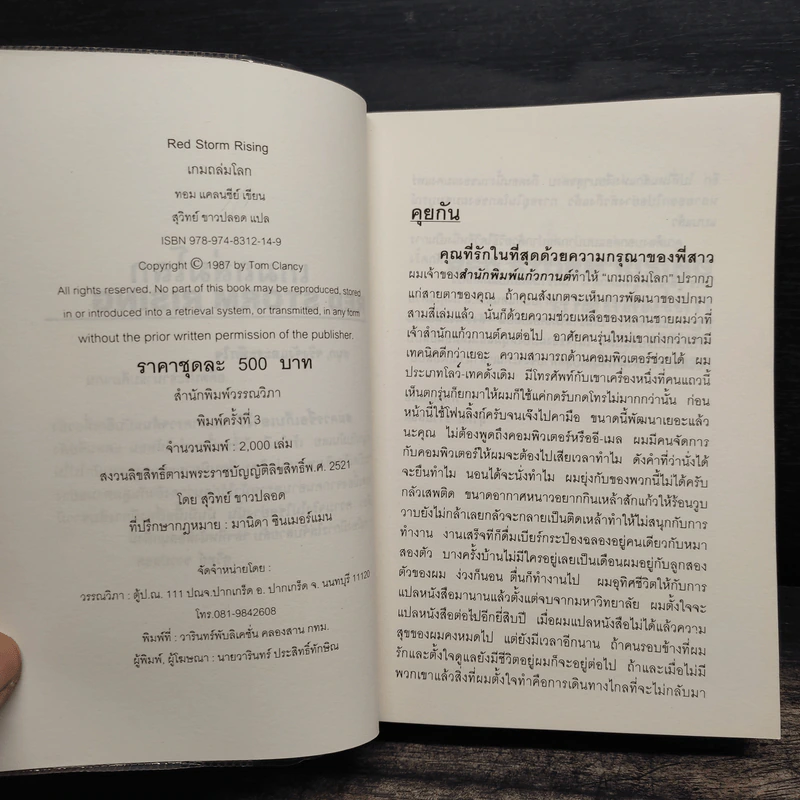 Red Storm Rising
เกมถล่มโลก
ทอม แคลนซีย์ เขียน
สุวิทย์ ขาวปลอด แปล
ISBN 978-974-8312-14-9
Copyright © 1987 by Tom Clancy
All rights reserved. No part of this book may be reproduced, stored
in or introduced into a retrieval system, or transmitted, in any form
without the prior written permission of the publisher.
ราคาชุดละ 500 บาท
สำนักพิมพ์วรรณวิภา
พิมพ์ครั้งที่ 3
จำนวนพิมพ์ : 2,000 เล่ม
สงวนลิขสิทธิ์ตามพระราชบัญญัติลิขสิทธิ์พ.ศ. 2521
โดย สุวิทย์ ขาวปลอด
ที่ปรึกษากฎหมาย : มานิดา ซินเมอร์แมน
จัดจำหน่ายโดย :
วรรณวิภา : ตู้ปณ. 111 ปณจ.ปากเกร็ด อ. ปากเกร็ด จ. นนทบุรี 11120
โทร.081-9842608
พิมพ์ที่ : วารินทร์พับลิเคชั่น คลองสาน กทม.
ผู้พิมพ์, ผู้โฆษณา : นายวารินทร์ ประสิทธิ์ทักษิณ
คุยกัน
คุณที่รักในที่สุดด้วยความกรุณาของพี่สาว
ผมเจ้าของสำนักพิมพ์แก้วกานต์ทำให้ "เกมถล่มโลก" ปรากฏ
แก่สายตาของคุณ ถ้าคุณสังเกตจะเห็นการพัฒนาของปกมา
สามสี่เล่มแล้ว นั่นก็ด้วยความช่วยเหลือของหลานชายผมว่าที่
เจ้าสำนักแก้วกานต์คนต่อไป อาศัยคนรุ่นใหม่เขาเก่งกว่าเรามี
เทคนิคดีกว่าเยอะ ความสามารถด้านคอมพิวเตอร์ช่วยได้ ผม
ประเภทโลว์-เทคดั้งเดิม มีโทรศัพท์กับเขาเครื่องหนึ่งที่คนแถวนี้
เห็นตกรุ่นก็ยกมาให้ผมก็ใช้แค่กดรับกดโทรไม่มากกว่านั้น ก่อน
หน้านี้ใช้โฟนลิ้งก์ครับจนเจ๊งไปคามือ ขนาดนี้พัฒนาเยอะแล้ว
นะคุณ ไม่ต้องพูดถึงคอมพิวเตอร์หรืออี-เมล ผมมีคนจัดการ
กับคอมพิวเตอร์ให้ผมจะต้องไปเสียเวลาทำไม ดังคำที่ว่านั่งได้
จะยืนทำไม นอนได้จะนั่งทำไม ผมยุ่งกับของพวกนี้ไม่ได้ครับ
กลัวเสพติด ขนาดอากาศหนาวอยากกินเหล้าสักแก้วให้ร้อนวูบ
วาบยังไม่กล้าเลยกลัวจะกลายเป็นติดเหล้าทำให้ไม่สนุกกับการ
ทำงาน งานเสร็จทีก็ดื่มเบียร์กระป๋องฉลองอยู่คนเดียวกับหมา
สองตัว บางครั้งบ้านไม่มีใครอยู่เลยเป็นเดือนผมอยู่กับลูกสอง
ตัวของผม ง่วงก็นอน ตื่นก็ทำงานไป ผมอุทิศชีวิตให้กับการ
แปลหนังสือมานานแล้วตั้งแต่จบจากมหาวิทยาลัย ผมตั้งใจจะ
แปลหนังสือต่อไปอีกยี่สิบปี เมื่อผมแปลหนังสือไม่ได้แล้วความ
สุขของผมคงหมดไป แต่ยังมีเวลาอีกนาน ถ้าคนรอบข้างที่ผม
รักและตั้งใจดูแลยังมีชีวิตอยู่ผมก็จะอยู่ต่อไป ถ้าและเมื่อไม่มี
พวกเขาแล้วสิ่งที่ผมตั้งใจทำคือการเดินทางไกลที่จะไม่กลับมา